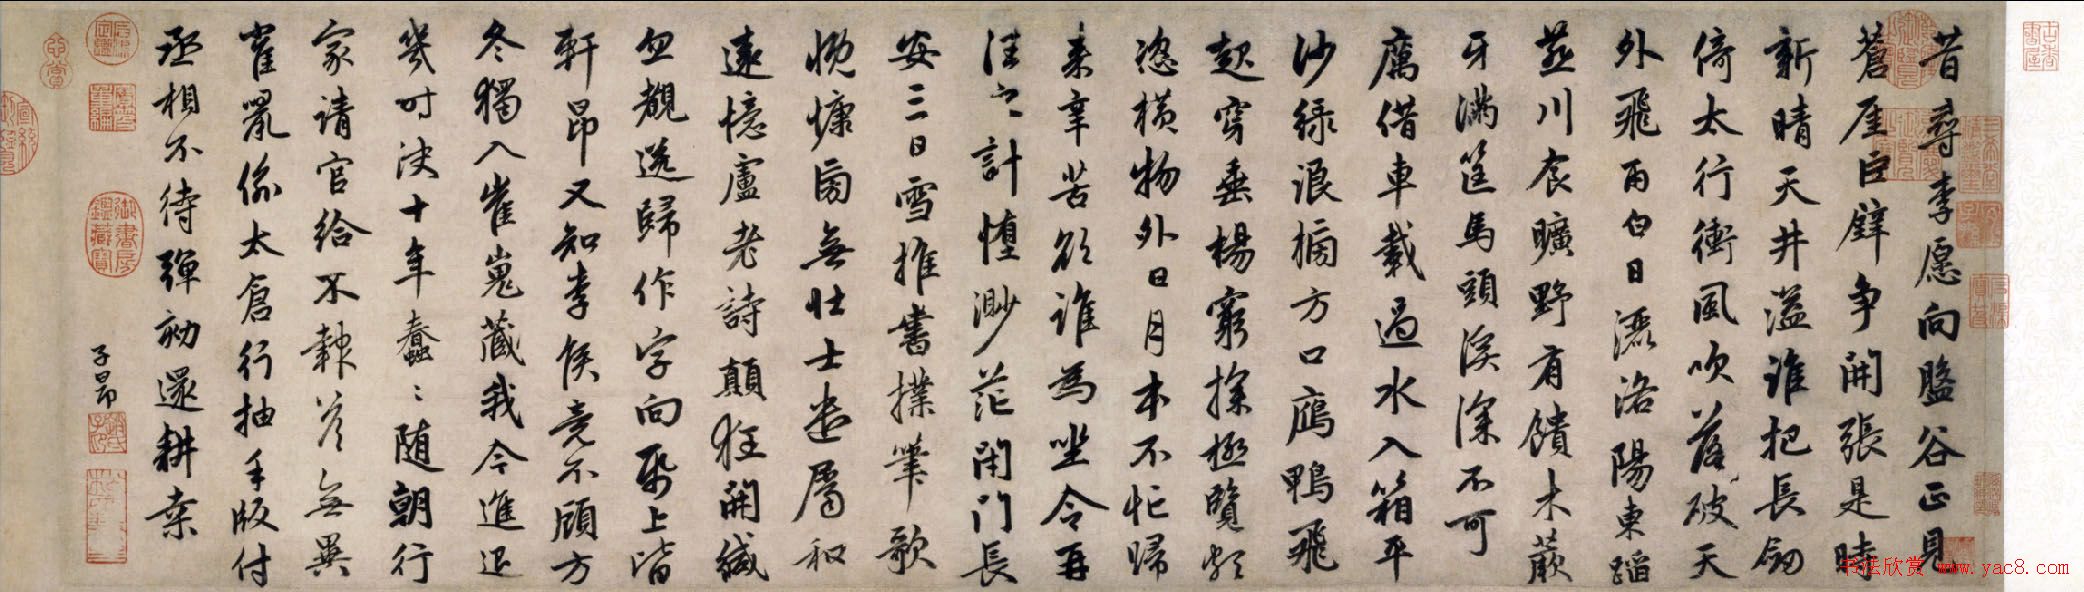 昔尋李愿向盤谷正見
蒼厓巨壁争開張是時
新晴天井溢誰把長劒
倚太行衝風吹落破天
外飛雨白日灑洛陽東蹈
燕川食曠野有饋木蕨
牙滿筐馬頭溪深不可
厲借車載過水入箱平
沙緑浪搒方口鴈鴨飛
起穿垂楊窮探極覽頗
恣横物外日月本不忙歸
来辛苦欲誰為坐令再
往之計墮渺茫閉門長
安三日雪推書撲筆歌
慨慷旁無壮士遣屬和
遠憶盧老詩顛狂開緘
忽覩送歸作字向帋上皆
軒昂又知李侯竟不顧方
冬獨入崔嵬藏我今進退
幾时决十年蠢〻随朝行
家請官給不報荅無異
雀鼠偷太倉行抽手版付
丞相不待彈劾還耕桒
子昂
御書房鑑藏寶
书法欣赏 www.yac8.com